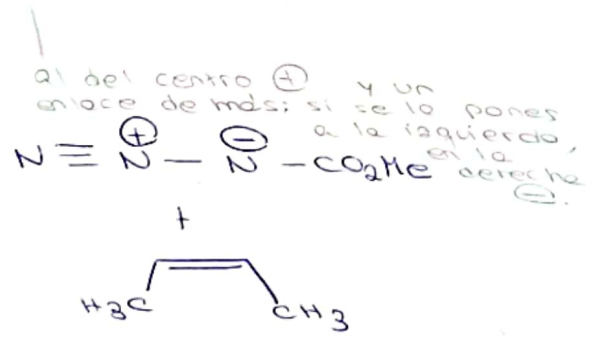 al del centro ⊕ y un
enlace de más; si se lo pones
a la izquierda,
en la
derecha
⊖.
⊕ ⊖
N ≡ N — N — CO2Me
+
H3C CH3